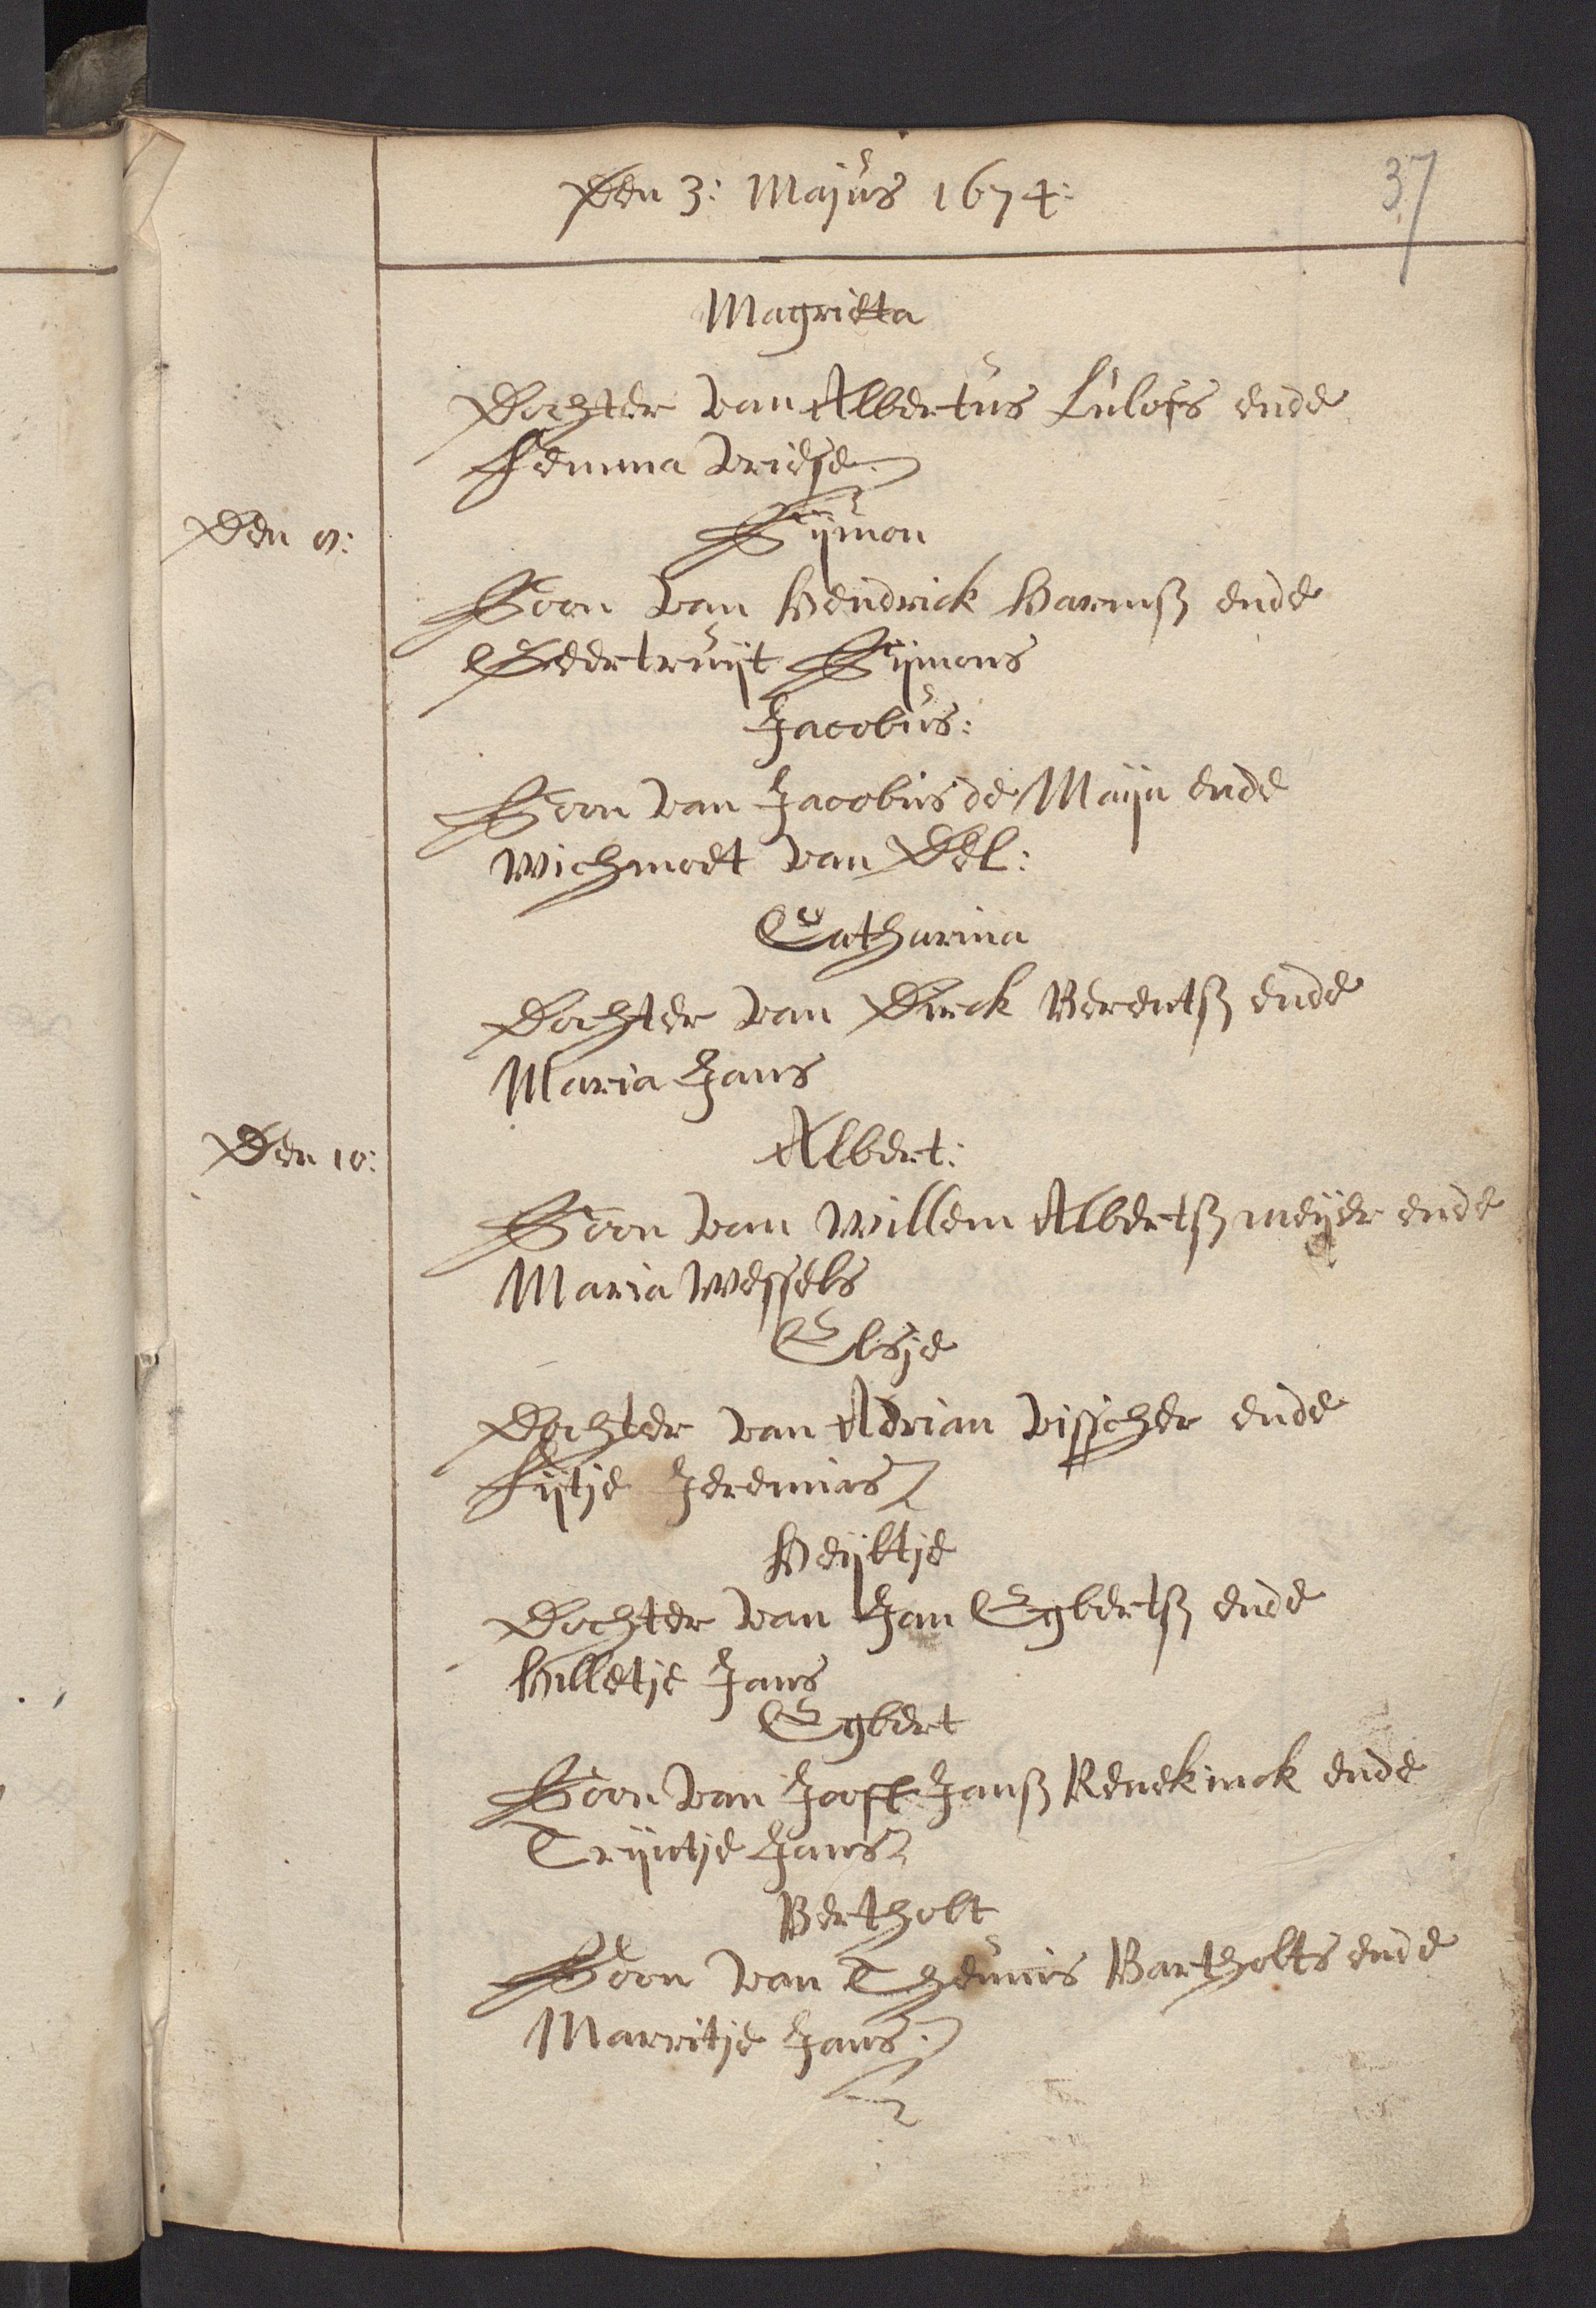 Den 3: Majus 1674:
37
Magrietta
Dochter van Albertus Lulofs ende
Femma Vriese
Den 9:
Sijmon
Soon van Hendrick Harmsz ende
Geertruijt Sijmons
Jacobus:
Soon van Jacobus de Maijn ende
Wichmoet van Del:
Catharina
Dochter van Dirck Berentsz ende
Maria Jans
Den 10:
Albert:
Soon van Willem Albertsz meijer ende
Maria Wessels
Elsje
Dochter van Adrian Visscher ende
Fijtje Jeremias
Heijltje
Dochter van Jan Egbertsz ende
Hilletje Jans
Egbert
Soon van Joost Jansz Renekinck ende
Trijntje Jans
Bertholt
Soon van Theunis Bartholts ende
Marritje Jans: